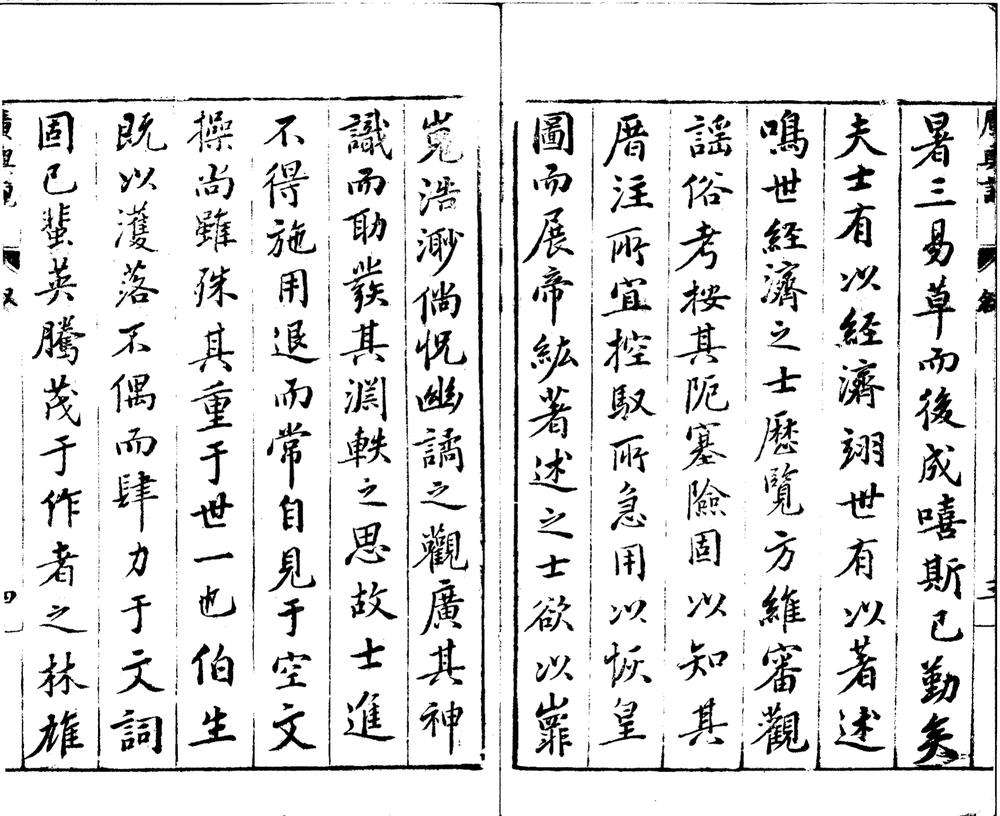 暑三易草而後成嘻斯已勤矣
夫士有以經濟翊世有以著述
鳴世經濟之士歷覽方維審觀
謡俗考按其阨塞險固以知其
厝注所宜控馭所急用以恢皇
圖而展帝紘著述之士欲以崔
嵬浩渺倘怳幽譎之觀廣其神
識而助發其淵軼之思故士進
不得施用退而常自見于空文
操尚雖殊其重于世一也伯生
既以濩落不偶而肆力于文詞
固已蜚英騰茂于作者之林雄
四